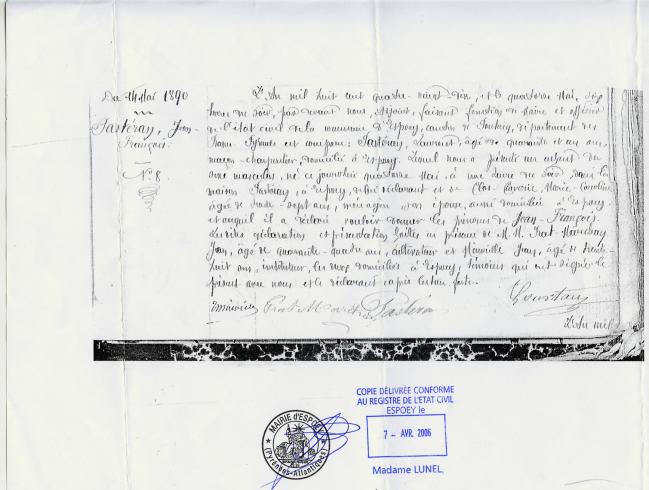 Du 14 Mai 1890
Sartéran, Jean-
François.
N° 8.
L'an mil huit cent quatre-vingt-dix, et le quatorze Mai, sept
heures du soir, par devant nous, adjoint, faisant fonction de Maire et officier
de l'état civil de la commune d'Espoey, canton de Pontacq, département des
Basses Pyrénées est comparu: Sartéran, Laurent, âgé de quarante et un ans,
maçon-charpentier, domicilié à Espoey. Lequel nous a présenté un enfant du
sexe masculin, né ce jourd'hui quatorze Mai, à une heure du soir dans la
maison à Espoey, de lui déclarant et de Clot Marie-Caroline
âgée de trente-sept ans, ménagère son épouse, aussi domiciliée à Espoey
et auquel il a déclaré vouloir donner les prénoms de Jean-François.
Les dites déclaration et présentation faites en présence de M.M. Prat-
Jean, âgé de quarante-quatre ans, cultivateur et Jean, âgé de trente-
huit ans, instituteur, les deux domiciliés à Espoey, témoins qui ont signé le
présent avec nous et le déclarant après lecture faite.
L'an mil
COPIE DÉLIVRÉE CONFORME
AU REGISTRE DE L'ETAT CIVIL
ESPOEY le
7 - AVR. 2006
Madame LUNEL,
MAIRIE d'ESPOEY
(Pyrénées-Atlantiques)